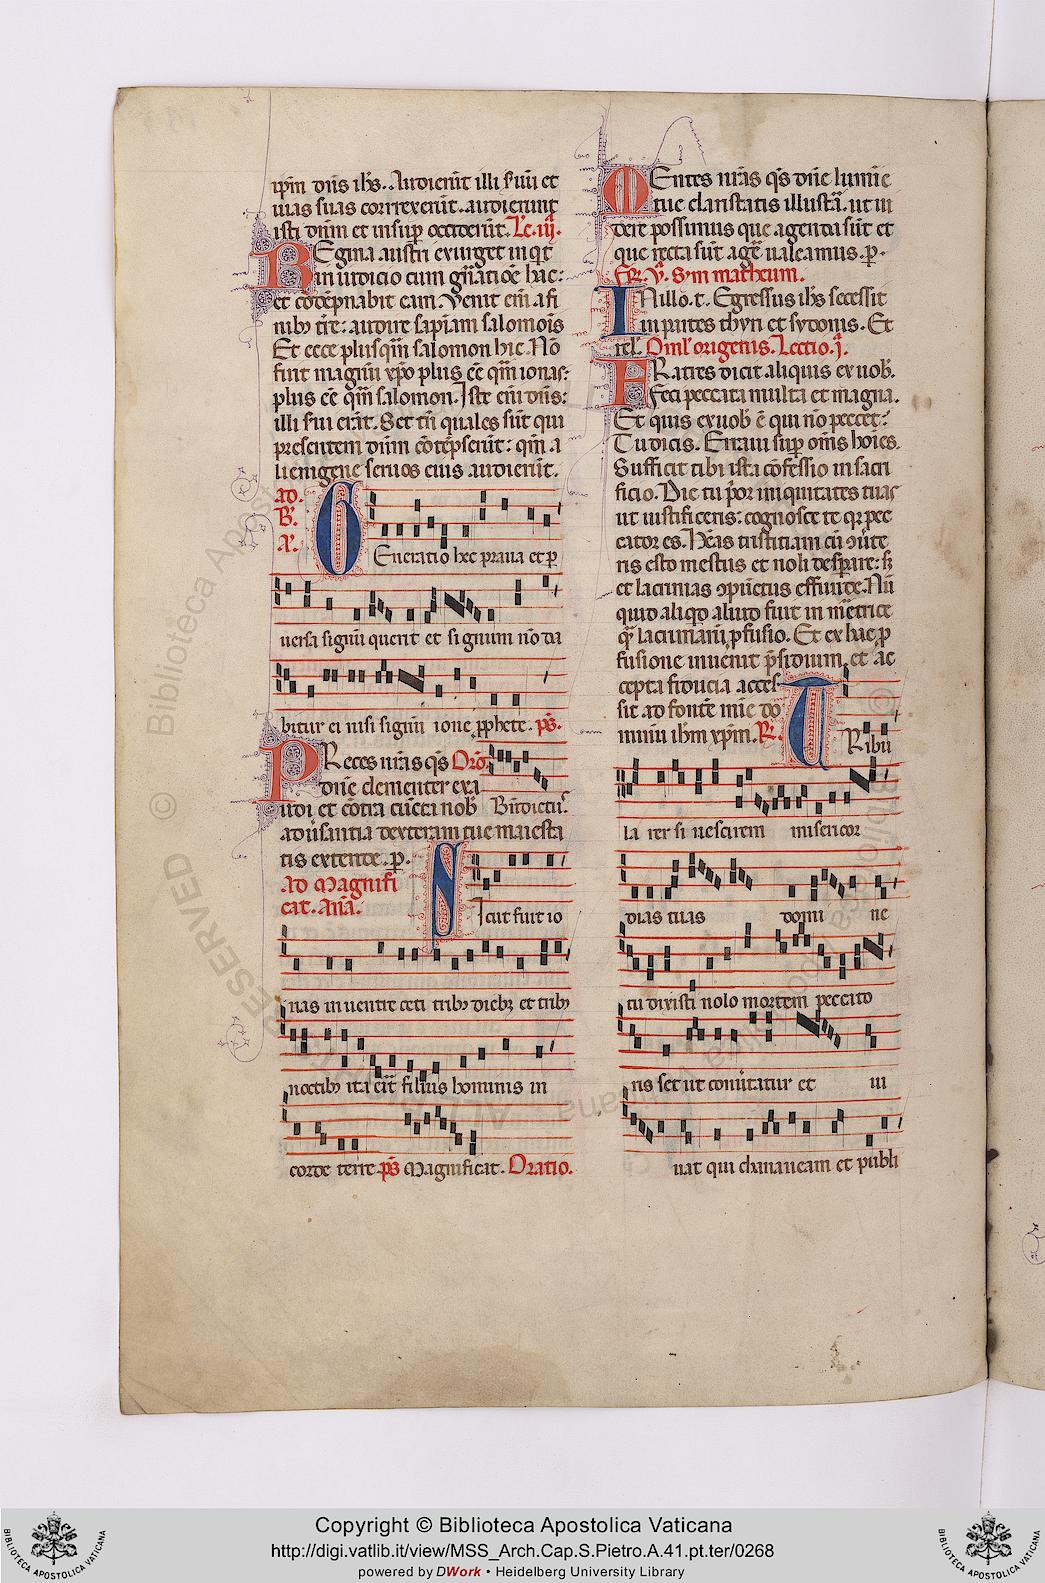 ipm dns ihs. Audierunt illi serui et
uias suas correxerunt. audierunt
isti dnm et insup occiderunt. Le. iij.
Regina austri exurget in qt
in iudicio cum gnatioe hac:
et codepnabit eam. Venit eni a fi
nibz tre: audire sapiam salomois
Et ecce plusqm salomon hic. No
fuit magnu xpo plus ee qm ionas:
plus ee qm salomon. Iste eni dns:
illi serui erat. Set tn quales sut qui
presentem dnm cotepserut: qm a
lienigene seruos eius audierut.
ad.
B.
A.
Generatio hec praua et p
uersa signu querit et signum no da
bitur ei nisi signu ione pphete. ps.
Preces nras qs Oro.
dne clementer exa
udi et cotra cucta nob Bndictus
aduersantia dexteram tue maiesta
tis extende. p.
Ad Magnifi
cat. Ana.
Sicut fuit io
nas in uentre ceti tribz diebz et tribz
noctibz ita erit filius hominis in
corde terre ps Magnificat. Oratio.
Mentes nras qs dne lumine
tue claritatis illustra. ut ui
dere possimus que agenda sut et
que recta sut agere ualeamus. p.
Fr. v. Sm matheum.
In illo. t. Egressus ihs secessit
in partes thyri et sydonis. Et
rel. Oml origenis. Lectio. j.
Fratres dicit aliquis ex uob.
Feci peccata multa et magna.
Et quis ex uob e qui no peccet?
Tu dicis. Erraui sup oms hoies.
Sufficit tibi ista cofessio in sacri
ficio. Dic tu por iniquitates tuas
ut iustificeris: cognosce te qr pec
cator es. Heas tristitiam cu ouerte
ris esto mestus et noli desperare: s
et lacrimas opuctus effunde. Nu
quid aliqd aliud fuit in meretrice
q lacrimaru pfusio. Et ex hac p
fusione inuenit psidium et ac
cepta fiducia acces
sit ad fonte mie do
minu ihm xpm. R.
Tribu
la rer si nescirem misericor
dias tuas domi ne
tu dixisti nolo mortem peccato
ris set ut conuertatur et ui
uat qui chananeam et publi
Copyright © Biblioteca Apostolica Vaticana
http://digi.vatlib.it/view/MSS_Arch.Cap.S.Pietro.A.41.pt.ter/0268
powered by DWork • Heidelberg University Library